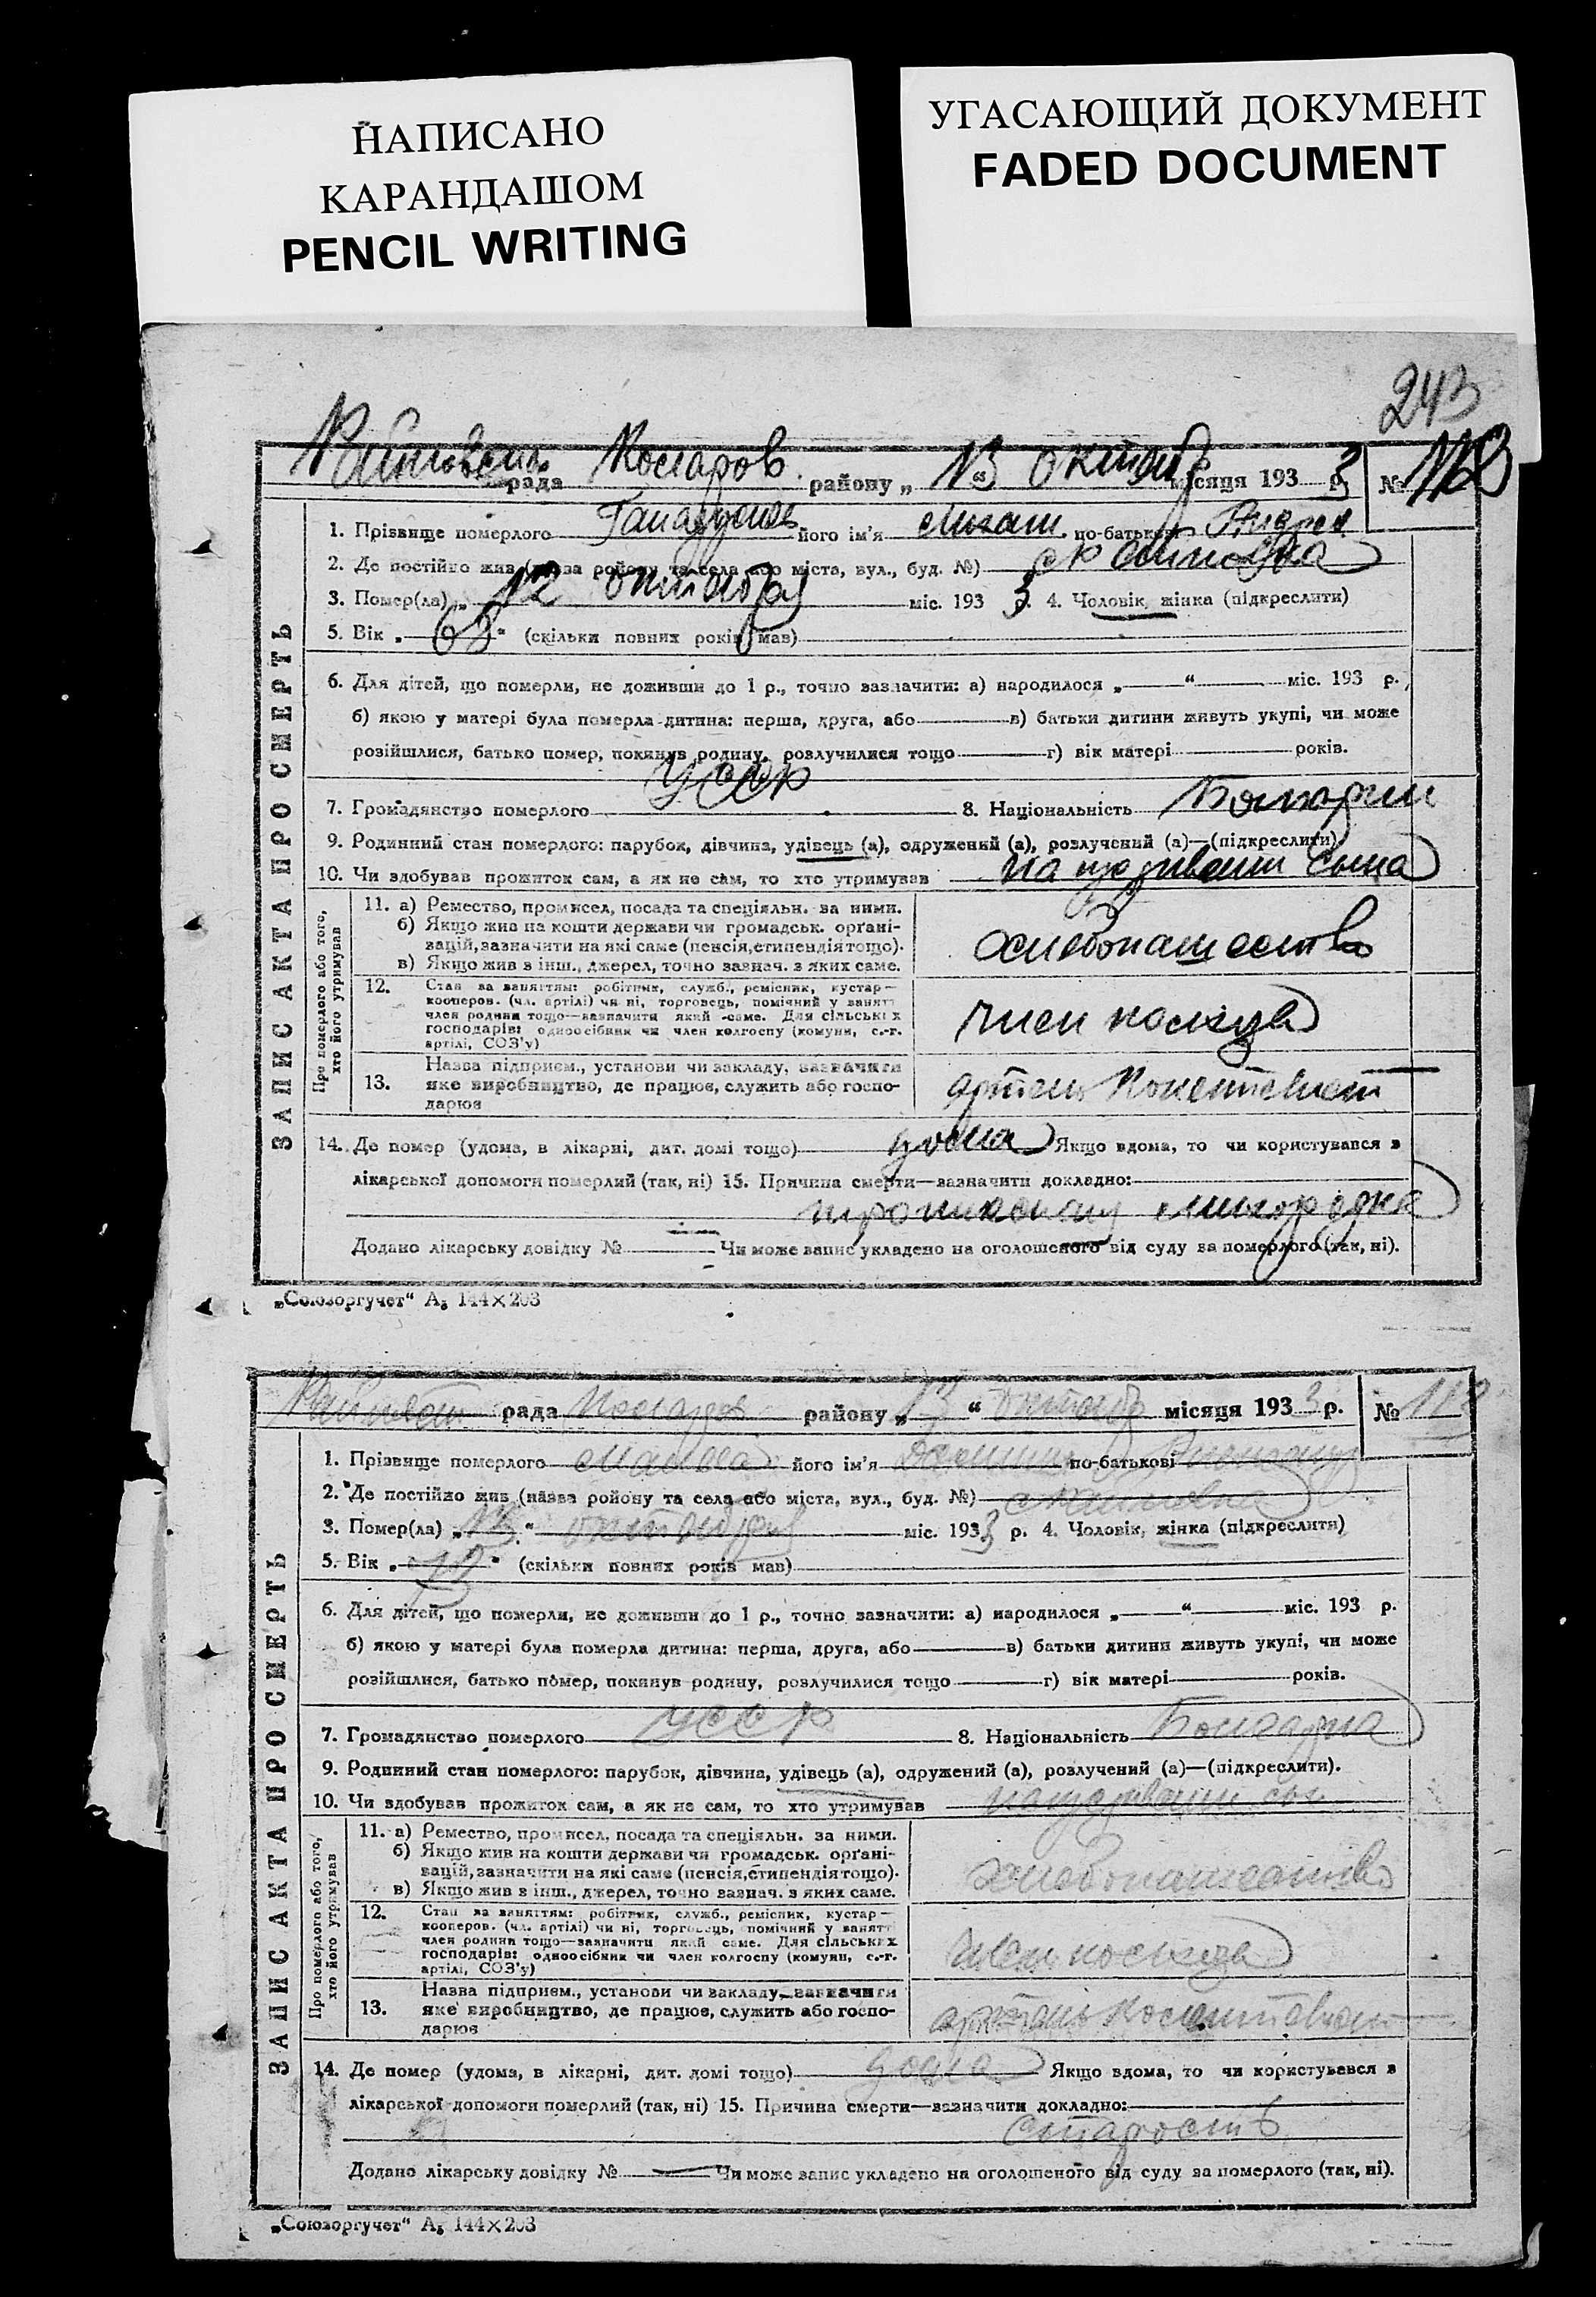 НАПИСАНО
КАРАНДАШОМ
PENCIL WRITING
УГАСАЮЩИЙ ДОКУМЕНТ
FADED DOCUMENT
243
рада району „ 13 “ октяб місяця 193 3 р. №
ЗАПИС АКТА ПРО СМЕРТЬ
1. Прізвище померлого його ім'я по-батькові
2. Де постійно жив (назва району та села або міста, вул., буд. №)
3. Помер(ла) „ 12 октября міс. 193 3 р. 4. Чоловік, жінка (підкреслити)
5. Вік „ 68 “ (скільки повних років мав)
6. Для дітей, що померли, не доживши до 1 р., точно зазначити: а) народилося „ “ міс. 193 р.
б) якою у матері була померла дитина: перша, друга, або в) батьки дитини живуть укупі, чи може
розійшлися, батько помер, покинув родину, розлучилися тощо г) вік матері років.
7. Громадянство померлого УССР 8. Національність Болгарин
9. Родинний стан померлого: парубок, дівчина, удівець (а), одружений (а), розлучений (а)—(підкреслити).
10. Чи здобував прожиток сам, а як не сам, то хто утримував на иждивении сына
Про померлого або того, хто його утримував
11. а) Ремество, промисел, посада та спеціяльн. за ними.
б) Якщо жив на кошти держави чи громадськ. органі-
зацій, зазначити на які саме (пенсія, стипендія тощо).
в) Якщо жив з інш., джерел, точно зазнач. з яких саме.
хлебопашество
12. Стан за заняттям: робітник, служб., ремісник, кустар—
кооперов. (чл. артілі) чи ні, торговець, помічний у занятт
член родини тощо—зазначити який саме. Для сільських
господарів: одноосібник чи член колгоспу (комуни, с.-г.
артілі, СОЗ'у)
член колхоза
13. Назва підприєм., установи чи закладу, зазначити
яке виробництво, де працює, служить або госпо-
дарює
артель
14. Де помер (удома, в лікарні, дит. домі тощо) дома Якщо вдома, то чи користувався з
лікарської допомоги померлий (так, ні) 15. Причина смерти—зазначити докладно:
Додано лікарську довідку № Чи може запис укладено на оголошеного від суду за померлого (так, ні).
„Союзоргучет“ А₅ 144×203
рада району „ 13 “ октяб місяця 193 3 р. №
ЗАПИС АКТА ПРО СМЕРТЬ
1. Прізвище померлого його ім'я по-батькові
2. Де постійно жив (назва району та села або міста, вул., буд. №)
3. Помер(ла) „ 13 “ октября міс. 193 3 р. 4. Чоловік, жінка (підкреслити)
5. Вік „ “ (скільки повних років мав)
6. Для дітей, що померли, не доживши до 1 р., точно зазначити: а) народилося „ “ міс. 193 р.
б) якою у матері була померла дитина: перша, друга, або в) батьки дитини живуть укупі, чи може
розійшлися, батько помер, покинув родину, розлучилися тощо г) вік матері років.
7. Громадянство померлого УССР 8. Національність Болгарка
9. Родинний стан померлого: парубок, дівчина, удівець (а), одружений (а), розлучений (а)—(підкреслити).
10. Чи здобував прожиток сам, а як не сам, то хто утримував на иждивении
Про померлого або того, хто його утримував
11. а) Ремество, промисел, посада та спеціяльн. за ними.
б) Якщо жив на кошти держави чи громадськ. органі-
зацій, зазначити на які саме (пенсія, стипендія тощо).
в) Якщо жив з інш., джерел, точно зазнач. з яких саме.
хлебопашество
12. Стан за заняттям: робітник, служб., ремісник, кустар—
кооперов. (чл. артілі) чи ні, торговець, помічний у занятт
член родини тощо—зазначити який саме. Для сільських
господарів: одноосібник чи член колгоспу (комуни, с.-г.
артілі, СОЗ'у)
член колхоза
13. Назва підприєм., установи чи закладу, зазначити
яке виробництво, де працює, служить або госпо-
дарює
артель
14. Де помер (удома, в лікарні, дит. домі тощо) дома Якщо вдома, то чи користувався з
лікарської допомоги померлий (так, ні) 15. Причина смерти—зазначити докладно:
старость
Додано лікарську довідку № Чи може запис укладено на оголошеного від суду за померлого (так, ні).
„Союзоргучет“ А₅ 144×203